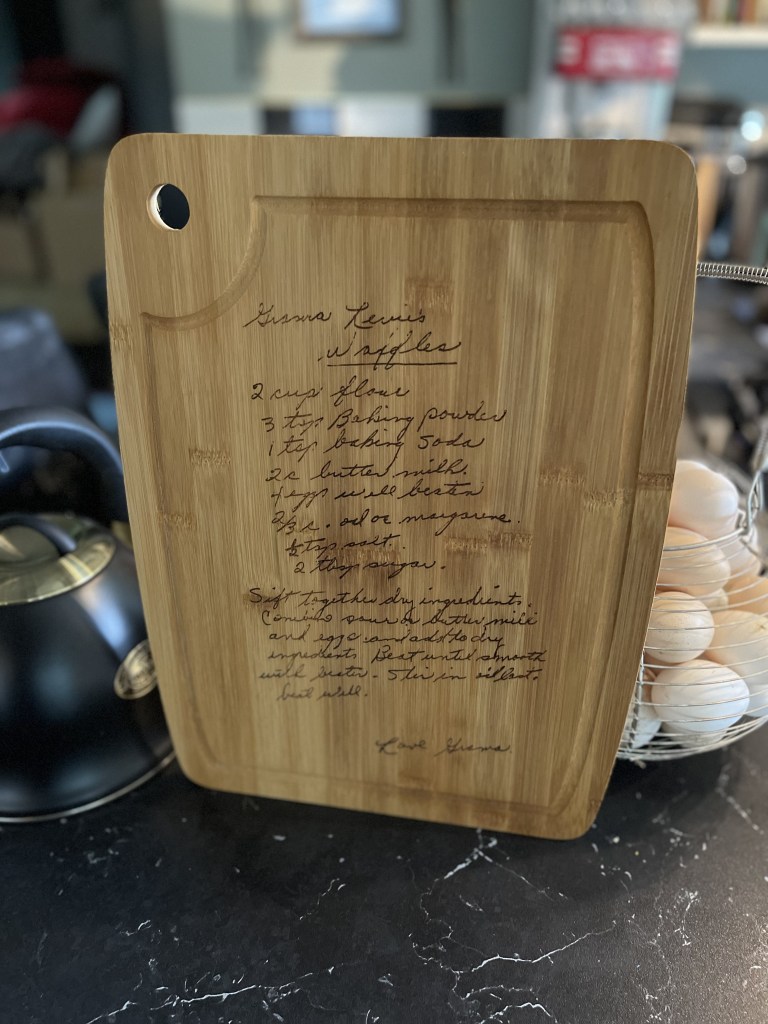 Grama Lewis
Waffles
2 cup flour
3 tsp Baking powder
1 tsp baking Soda
2 c butter milk.
4 eggs well beaten
2/3 c. oil or margarine.
½ tsp salt.
2 tbsp sugar.
Sift together dry ingredients.
Combine sour or butter milk
and eggs and add to dry
ingredients Beat until smooth
with beater - Stir in oil last.
beat well.
Love Grama